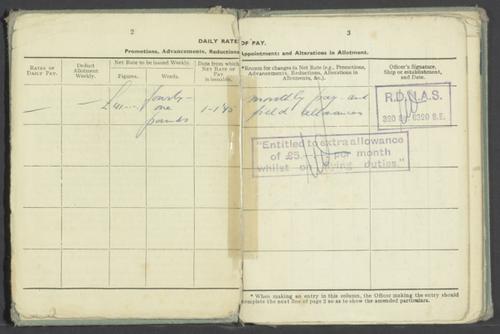 2
DAILY RATE
Promotions, Advancements, Reductions
RATES OF DAILY PAY.
Deduct Allotment Weekly.
Net Rate to be issued Weekly.
Figures.
Words.
Date from which NET RATE OF PAY is issuable.
—
—
£41-.-.
forty-
one
pounds
1-1-45
3
OF PAY.
Appointments and Alterations in Allotment.
*Reason for changes in Net Rate (e.g., Promotions, Advancements, Reductions, Alterations in Allotments, &c.).
Officer's Signature, Ship or establishment, and Date.
monthly pay and
field allowances
"Entitled to extra allowance
of £5. per month
whilst on flying duties."
* When making an entry in this column, the Officer making the entry should
complete the next line of page 2 so as to show the amended particulars.